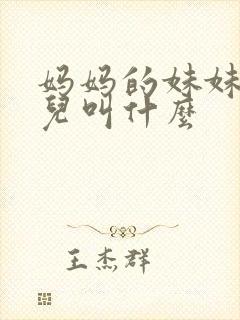 妈妈的妹妹
兒叫什麼
王杰群